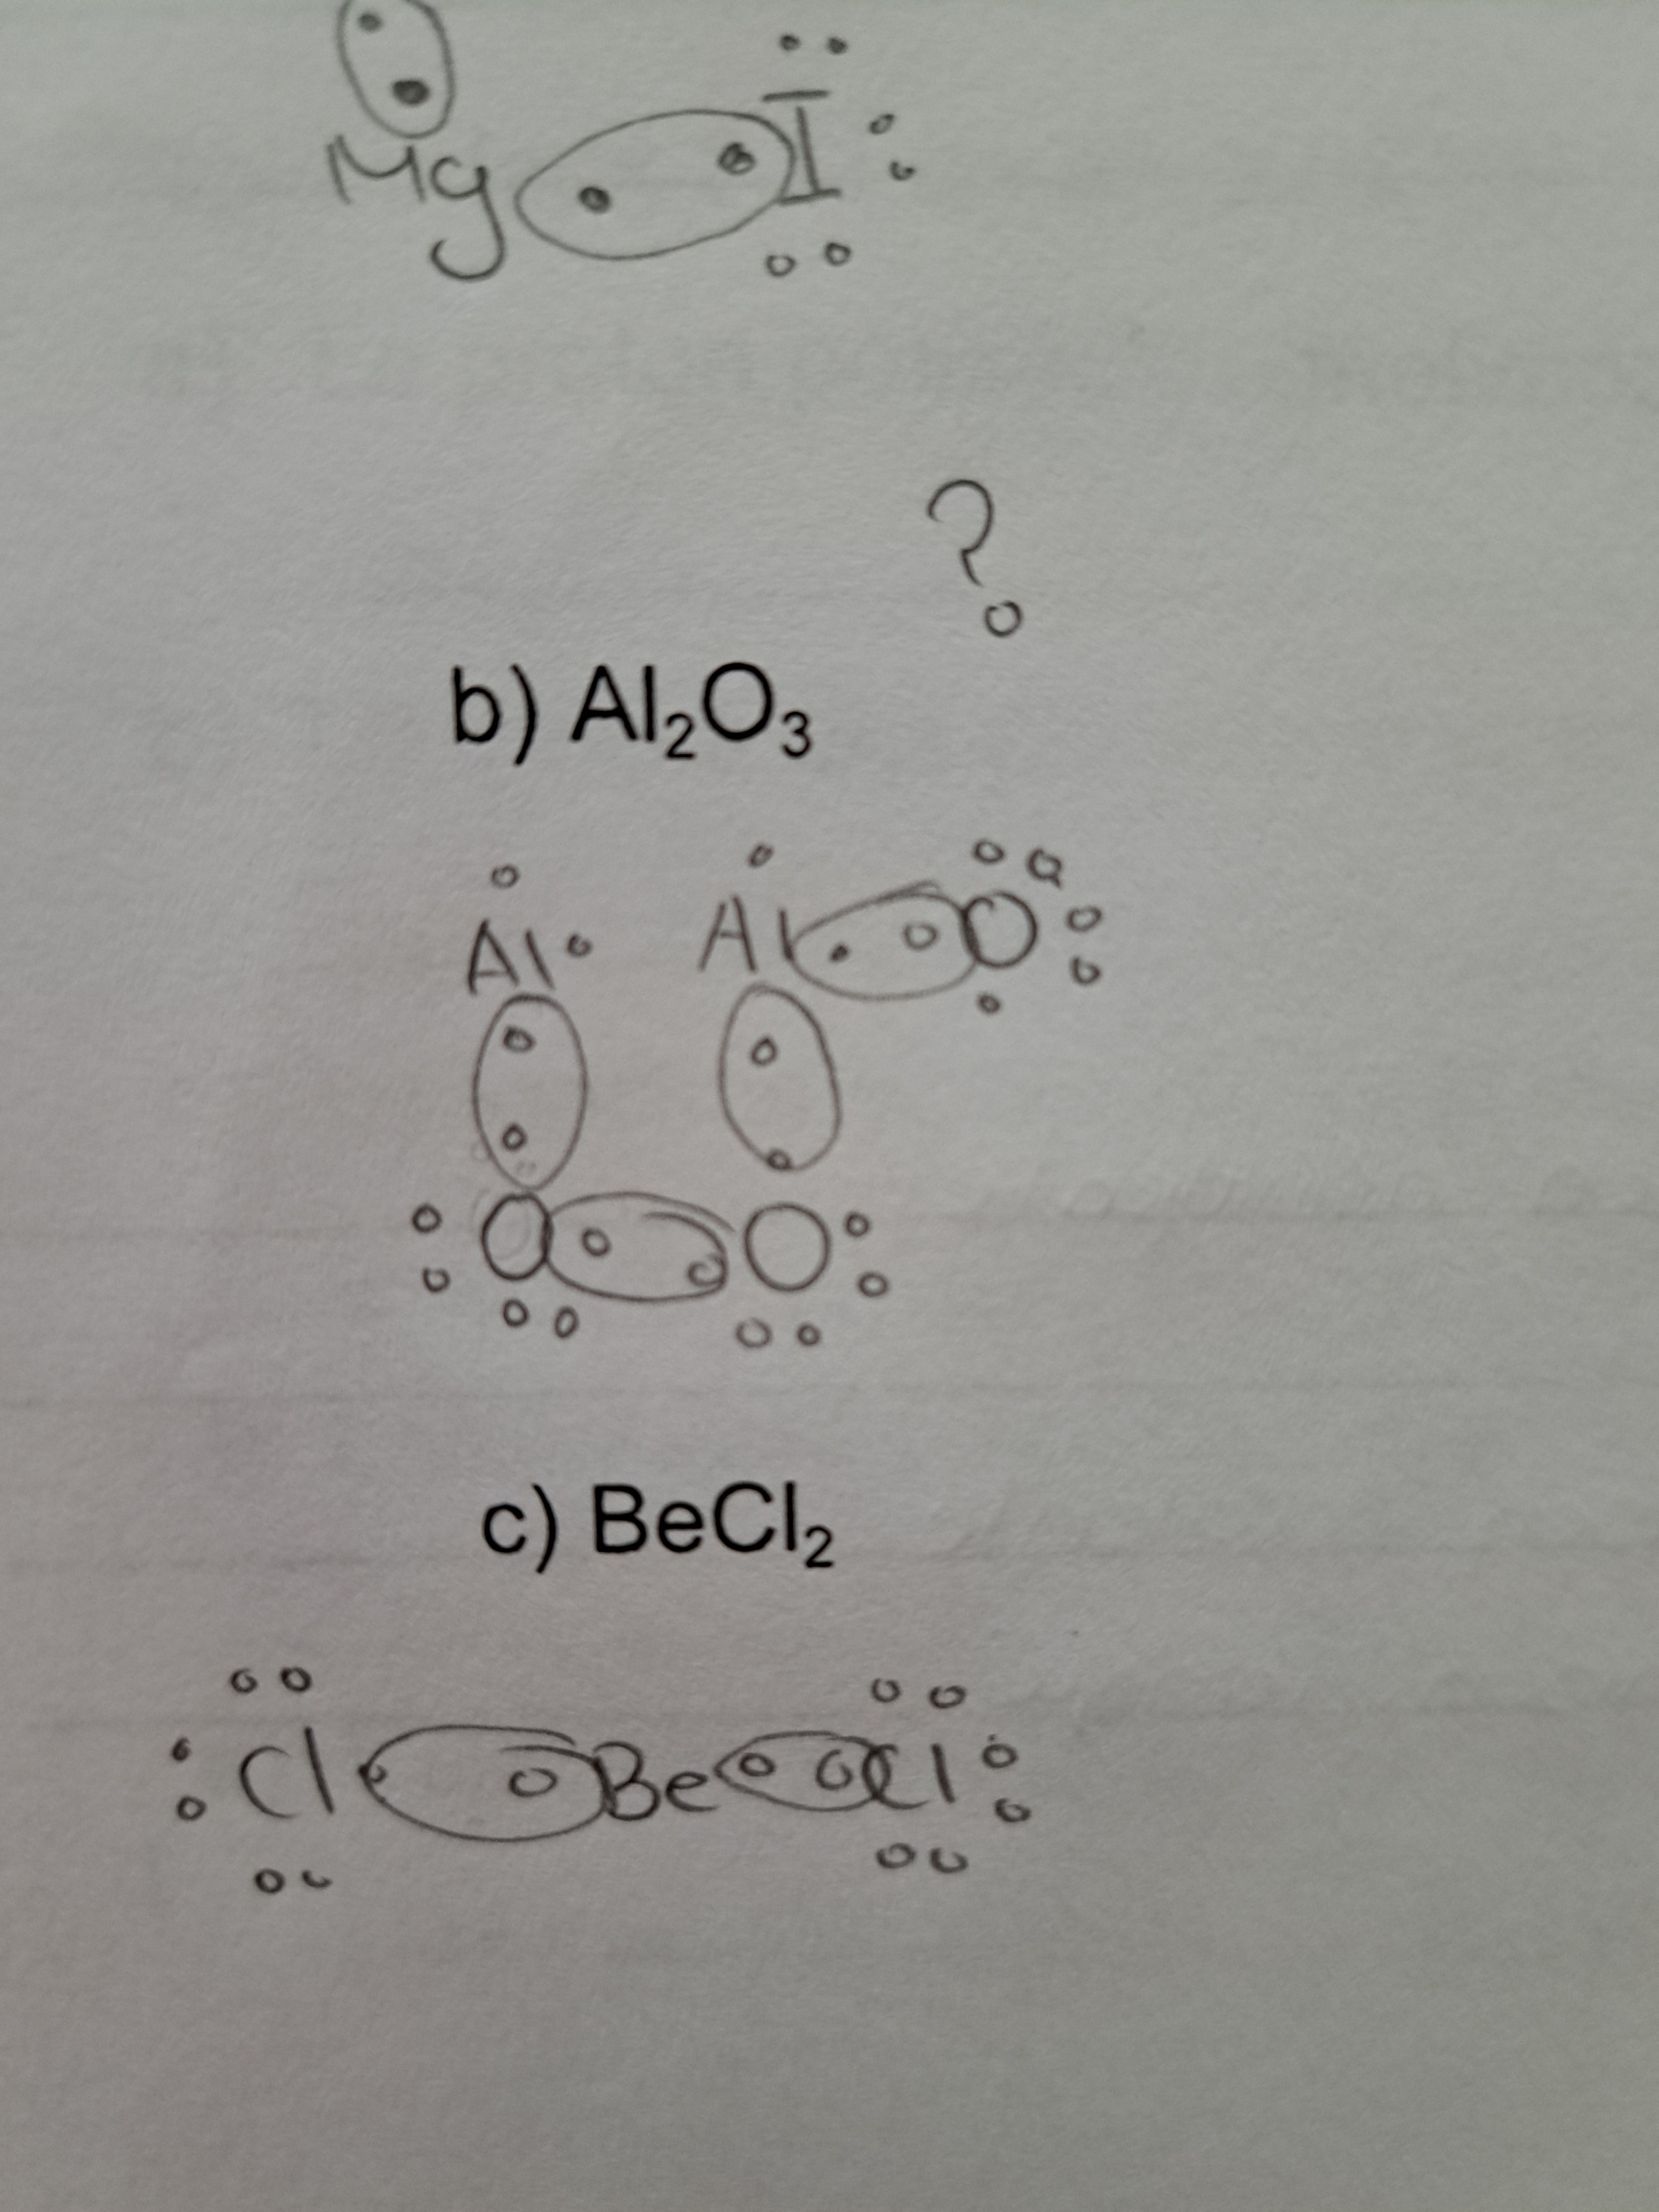 Mg I
?
b) Al₂O₃
Al Al O
O O
c) BeCl₂
Cl Be Cl